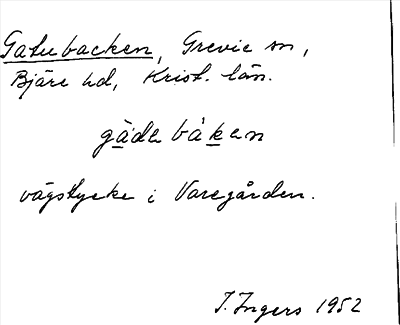 Gatubacken, Grevie sn,
Bjäre hd, Krist. län.
gàdebàken
vägstycke i Varegården.
I. Ingers 1952